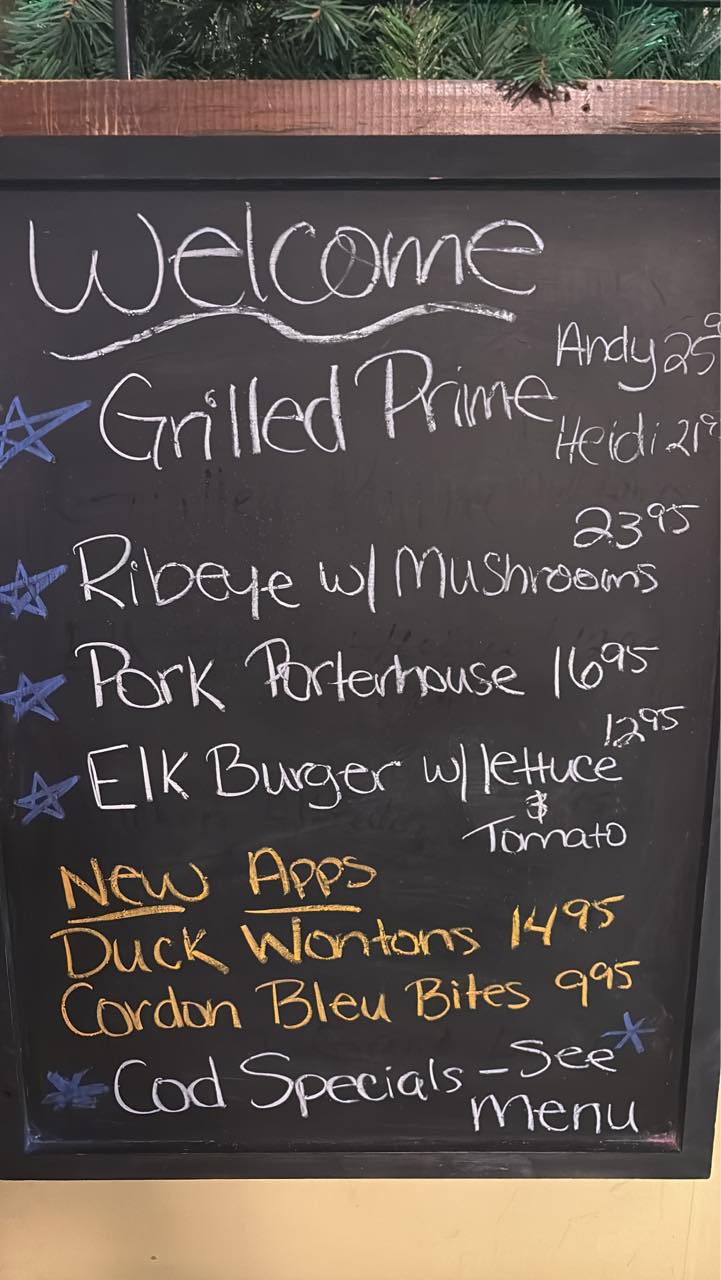 Welcome
Andy 25⁹
Grilled Prime
Heidi 21⁹
23⁹⁵
Ribeye w/ Mushrooms
Pork Porterhouse 16⁹⁵
12⁹⁵
Elk Burger w/ lettuce
&
Tomato
New Apps
Duck Wontons 14⁹⁵
Cordon Bleu Bites 9⁹⁵
Cod Specials - See
menu